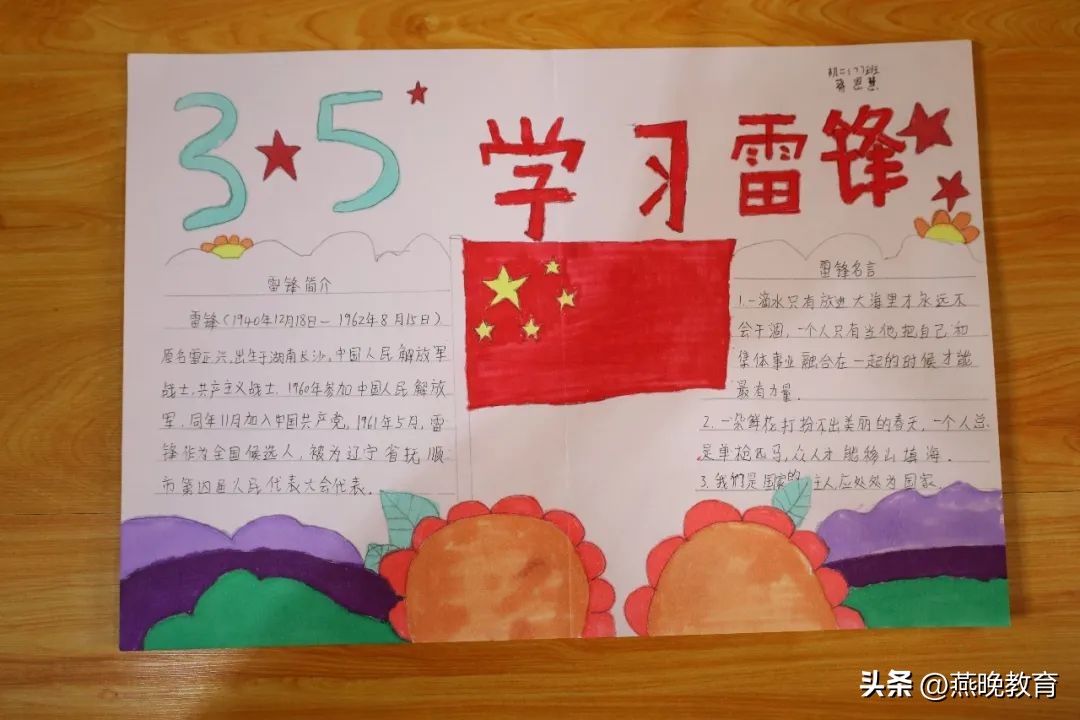 3★5 学习雷锋
初二(7)班
蒋思慧
雷锋简介
雷锋(1940年12月18日—1962年8月15日)
原名雷正兴,出生于湖南长沙,中国人民解放军
战士,共产主义战士,1960年参加中国人民解放
军,同年11月加入中国共产党,1961年5月,雷
锋作为全国候选人,被为辽宁省抚顺
市第四届人民代表大会代表.
雷锋名言
1.一滴水只有放进大海里才永远不
会干涸,一个人只有当他把自己和
集体事业融合在一起的时候才能
最有力量.
2.一朵鲜花打扮不出美丽的春天,一个人总
是单枪匹马,众人才能移山填海.
3.我们是国家的主人,应处处为国家.
头条 @燕晚教育